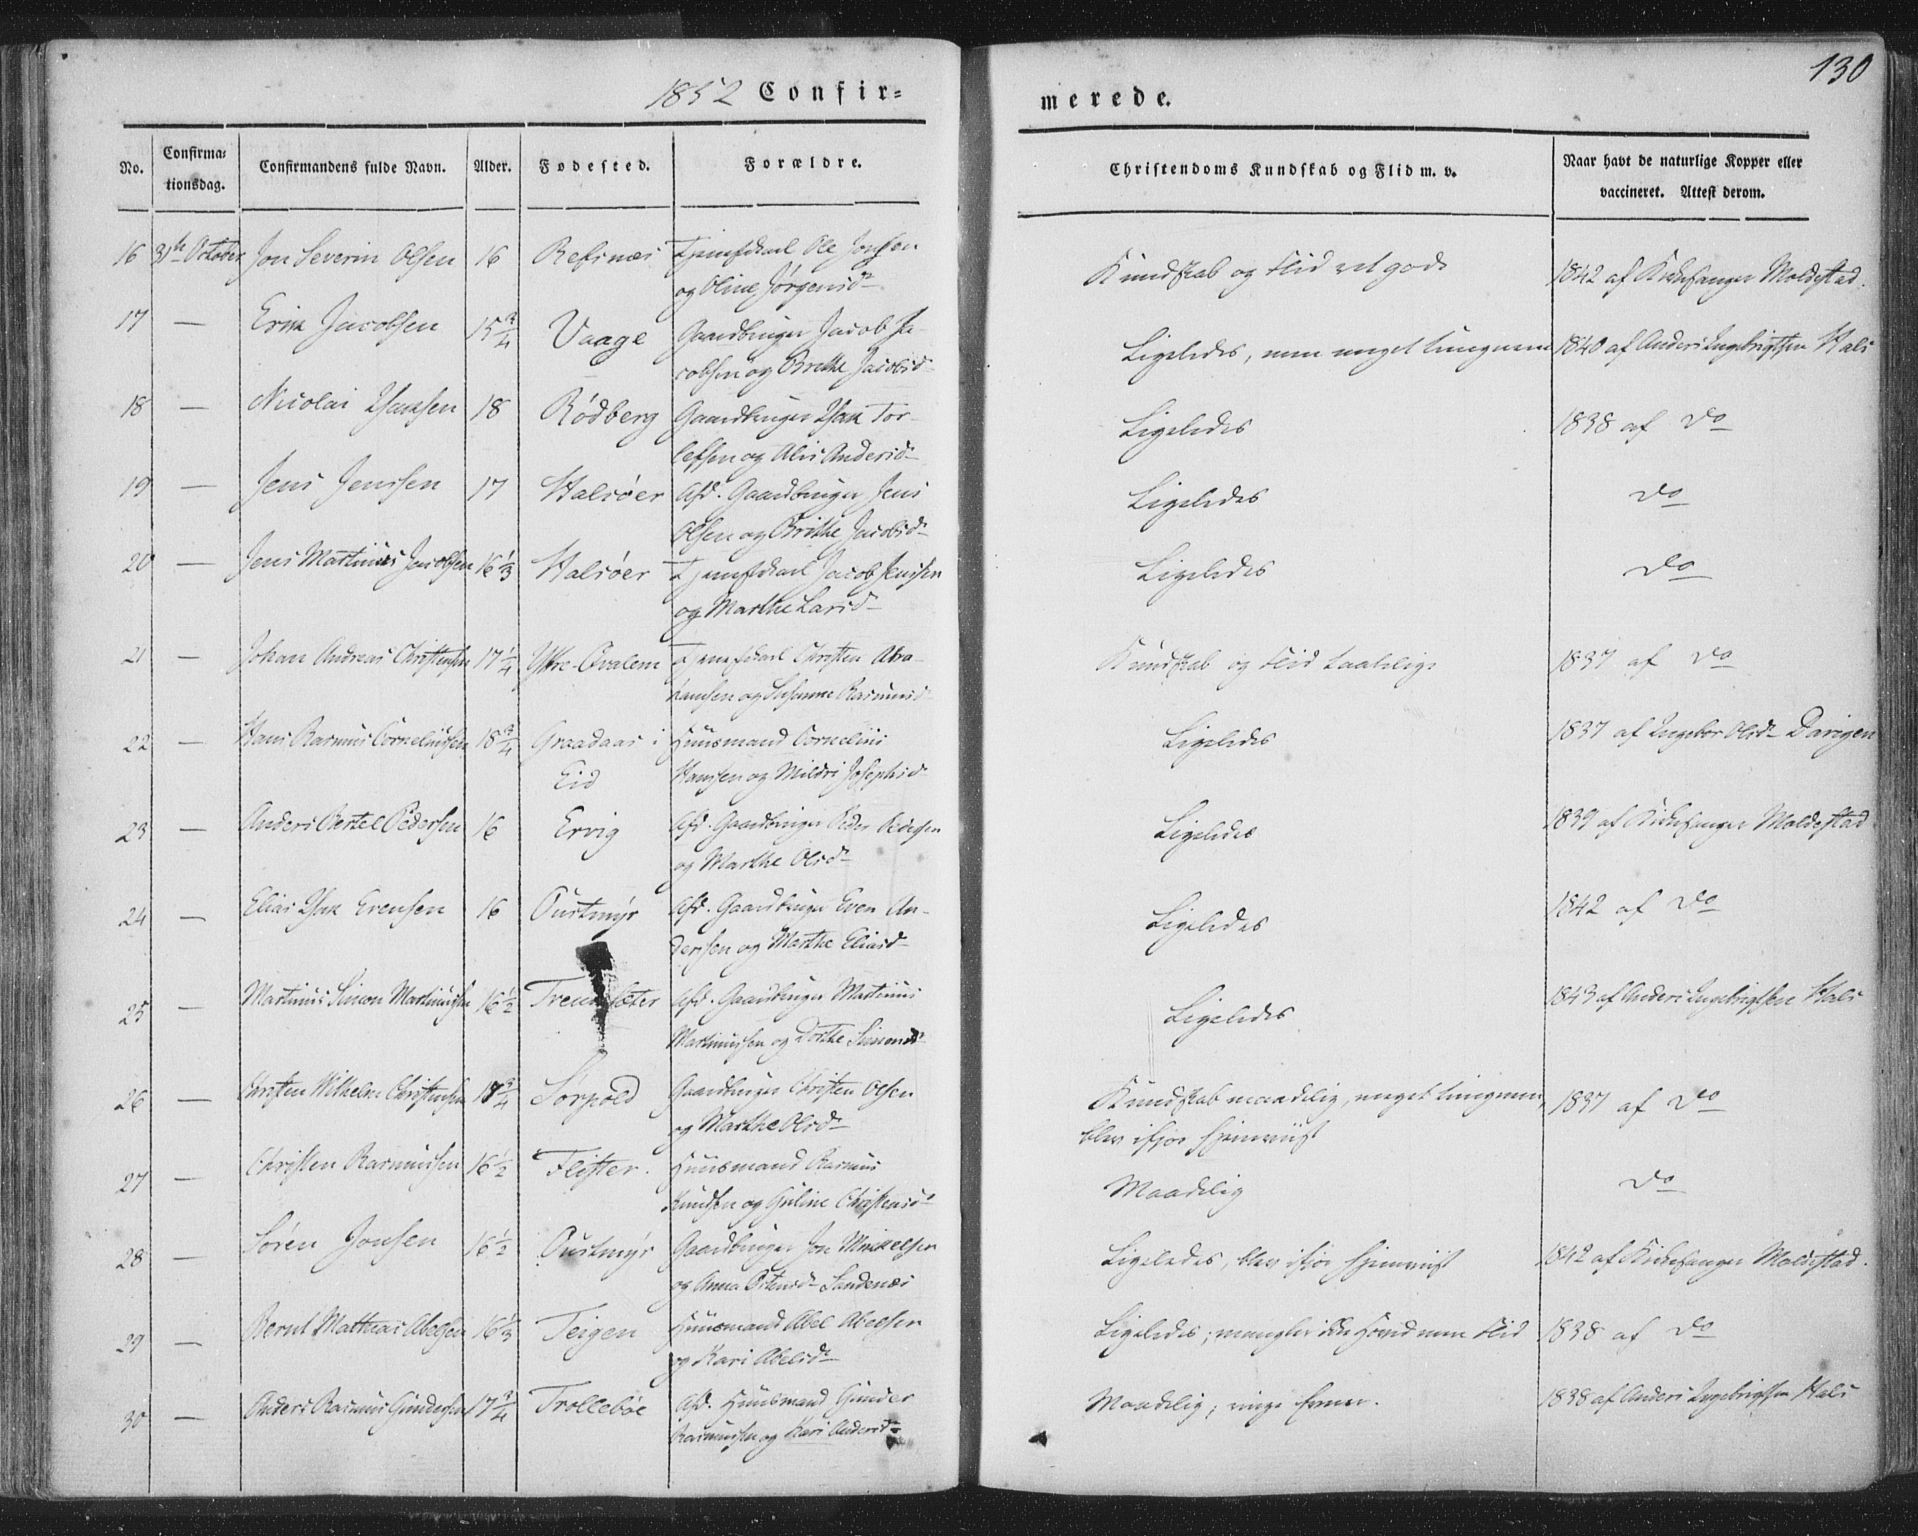 1852 Confir=
merede.
130
No.
Confirma=
tionsdag.
Confirmandens fulde Navn.
Alder.
Fødested.
Forældre.
Christendoms Kundskab og Flid m. v.
Naar havt de naturlige Kopper eller
vaccineret. Attest derom.
16 31te October Jon Severin Olsen 16 Refsnæs Tjenestkarl Ole Jonsen
og Oline Jørgensd.
Kundskab og Flid ret gode
1842 af Kirkesanger Moldestad.
17 — Erik Jacobsen 15 3/4 Vaage Gaardbruger Jacob Ja-
cobsen og Brethe Jacobsd.
Ligeledes, men meget tungnem
1840 af Anders Ingebrigtsen Hals
18 — Nicolai Isaksen 18 Rødberg Gaardbruger Isak Tor-
lefsen og Alis Andersd.
Ligeledes
1838 af Do
19 — Jens Jenssen 17 Halsøer Afd. Gaardbruger Jens
Olsen og Brithe Jacobsd.
Ligeledes
Do
20 — Jens Martinus Jacobsen 16 1/3 Halsøer Tjenestkarl Jacob Jenssen
og Marthe Larsd.
Ligeledes
Do
21 — Johan Andreas Christensen 17 1/4 Ytre-Qvalem Tjenestkarl Christen Abra-
hamsen og Susanne Rasmusd.
Kundskab og Flid taalelige
1837 af Do
22 — Hans Rasmus Corneliussen 18 3/4 Graadaas i
Eid
Huusmand Cornelius
Hanssen og Mildri Josephsd.
Ligeledes
1837 af Ingebor Olsd. Davigen
23 — Anders Bertel Pedersen 16 Ervig Afd. Gaardbruger Peder Pedersen
og Marthe Olsd.
Ligeledes
1839 af Kirkesanger Moldestad
24 — Elias Isak Evensen 16 Oustmyr Afd. Gaardbruger Even An-
derssen og Marthe Eliasd.
Ligeledes
1842 af Do
25 — Martinus Simon Martinussen 16 1/2 Afd. Gaardbruger Martinus
Martinussen og Dorthe Simonsd.
Ligeledes
1843 af Anders Ingebrigtsen Hals
26 — Christen Wilhelm Christensen 18 3/4 Sørpold Gaardbruger Christen Olsen
og Marthe Olsd.
Kundskab maadelig, meget tungnem,
blev ifjor hjemviist
1837 af Do
27 — Christen Rasmussen 16 1/2 Flister. Huusmand Rasmus
Knudsen og Guline Christensd.
Maadelig
Do
28 — Søren Jonsen 16 1/2 Oustmyr Gaardbruger Jon Mikkelsen
og Anna Sandenæs
Ligeledes, blev ifjor hjemviist
1842 af Kirkesanger Moldestad.
29 — Bernt Mathias Abelsen 16 1/3 Teigen Huusmand Abel Abelsen
og Kari Abelsd.
Ligeledes; mangler ikke Haand men Flid
1838 af Do
30 — Anders Rasmus Gundersen 17 3/4 Trollebøe Afd. Huusmand Gunder
Rasmussen og Kari Andersd.
Maadelig; ringe Evner.
1838 af Anders Ingebrigtsen Hals